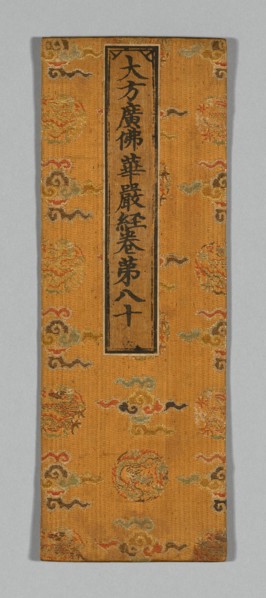 大方廣佛華嚴経卷第八十